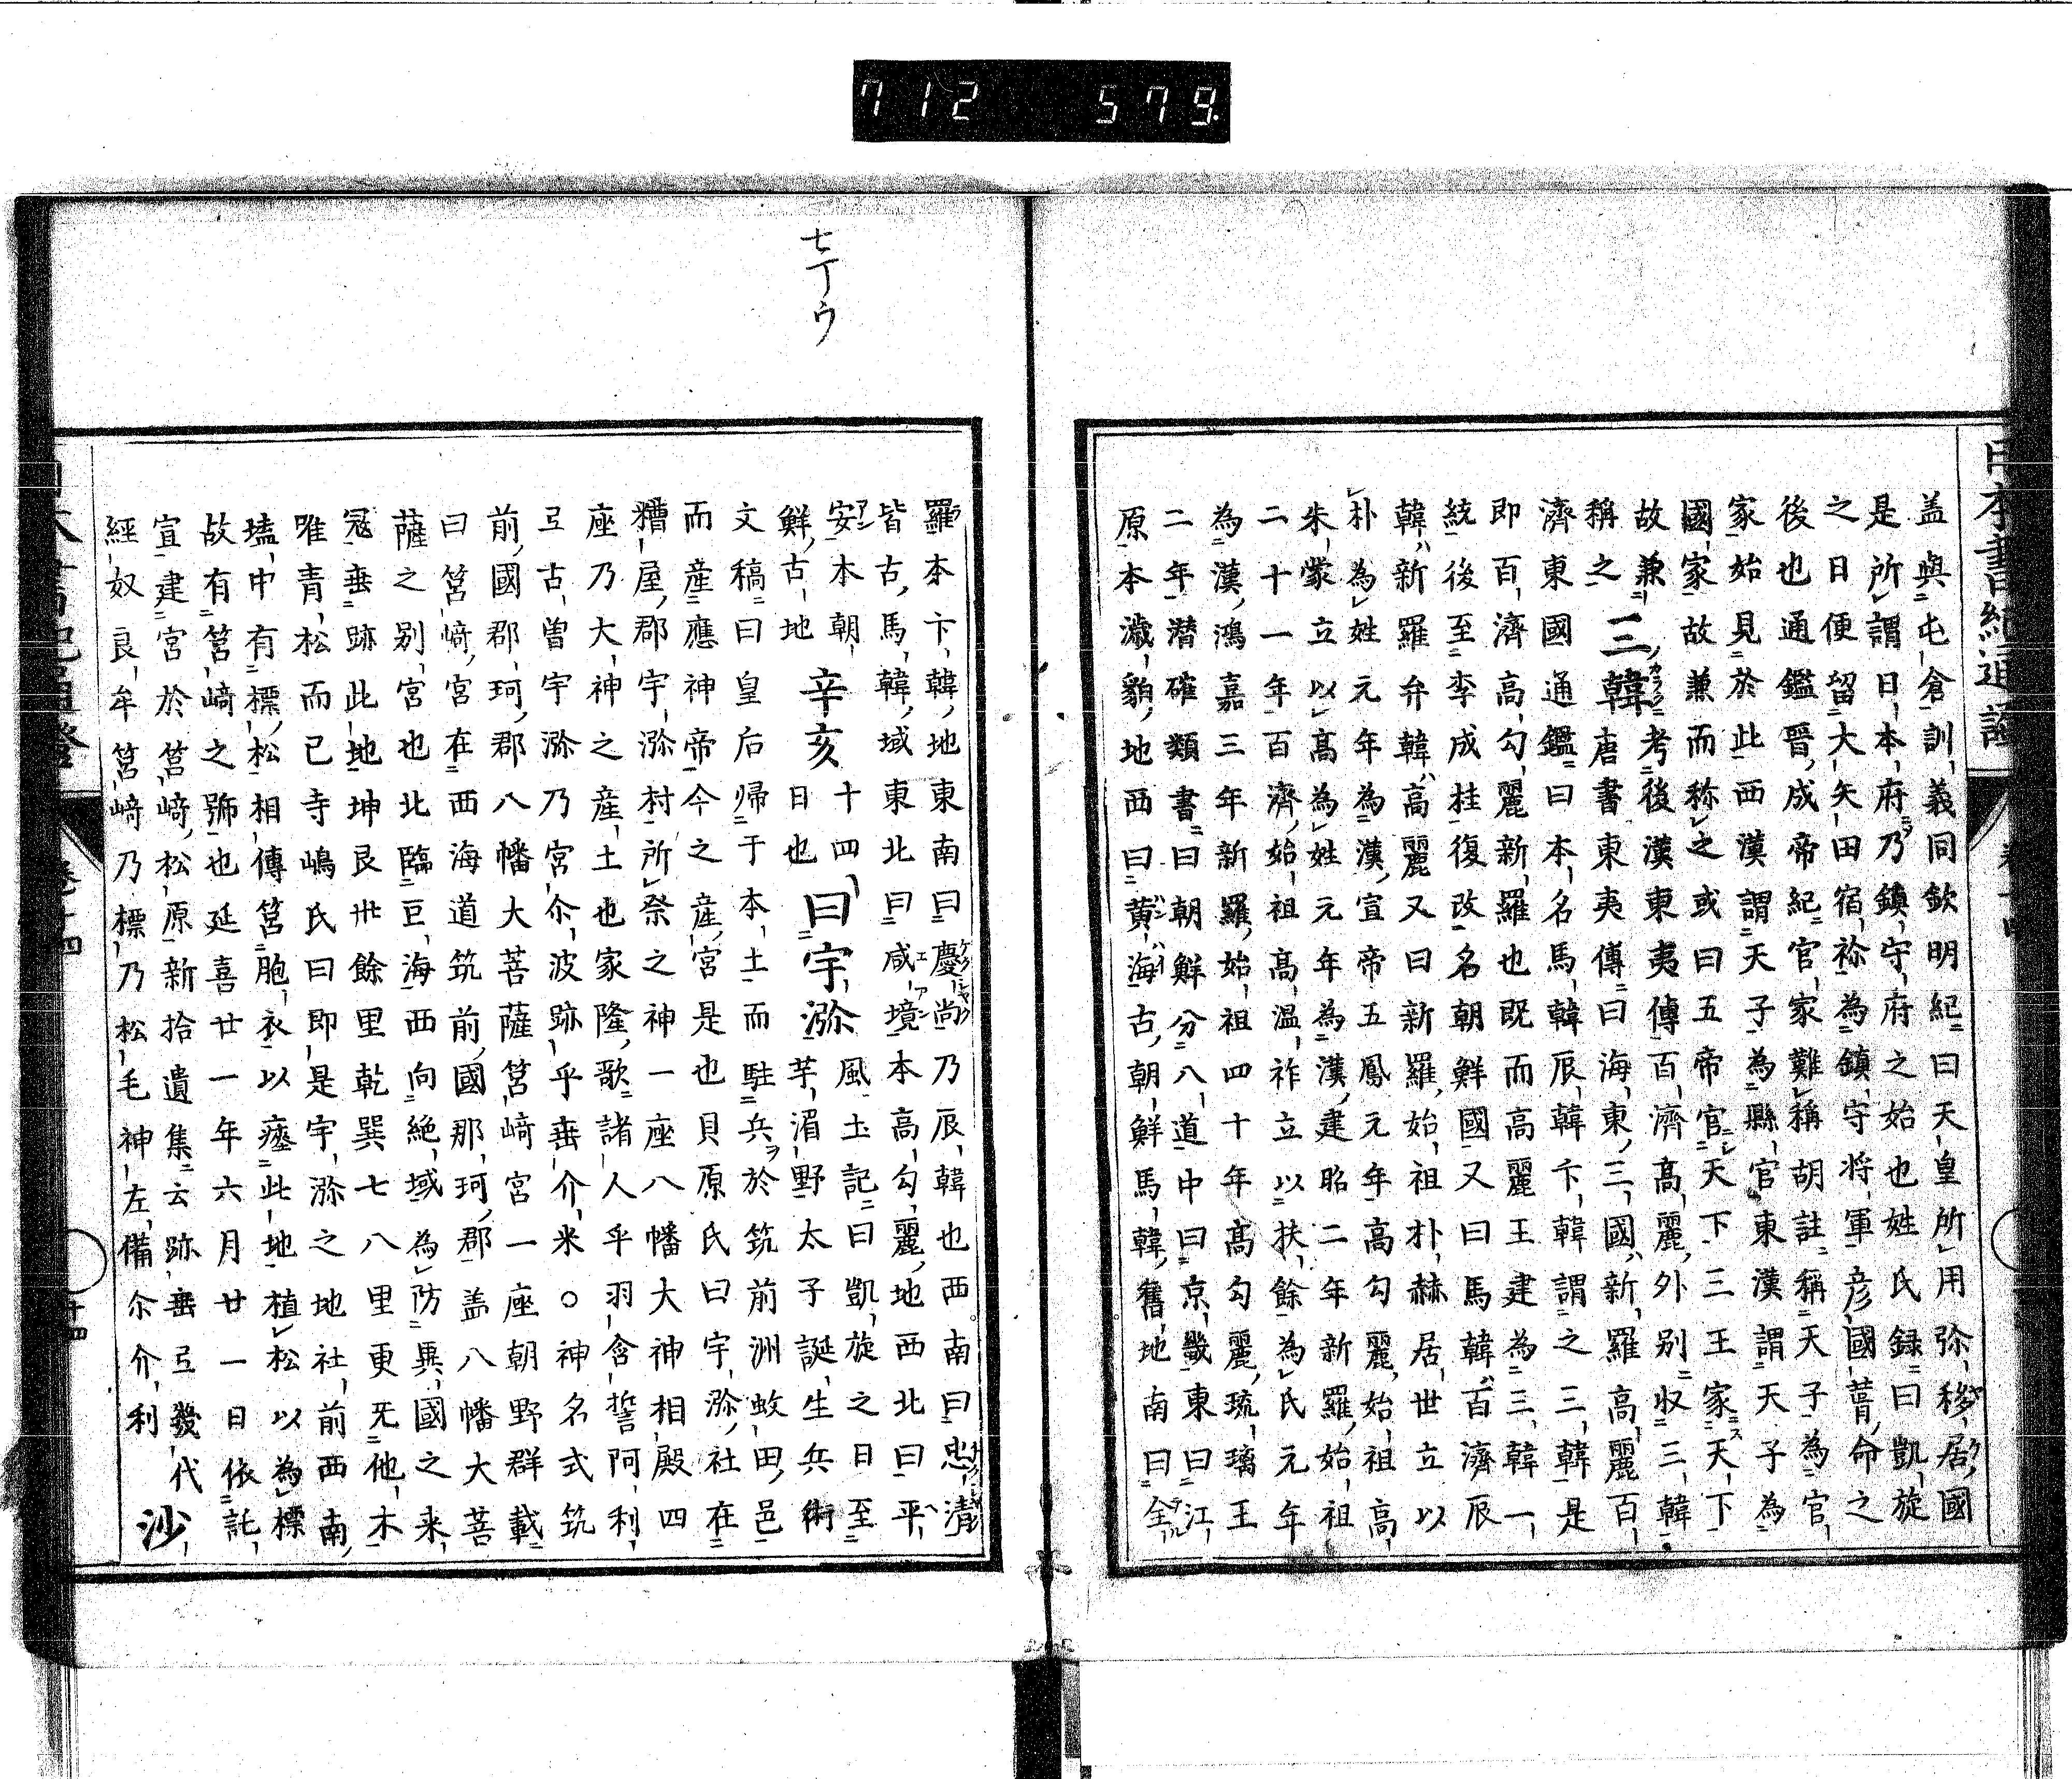 712 579
日本書紀通證
盖與屯倉訓義同欽明紀曰天皇所用弥移居國
是所謂日本府乃鎮守府之始也姓氏録曰凱旋
之日便留大矢田宿祢為鎮守将軍彦國葺命之
後也通鑑晋成帝紀官家難稱胡註稱天子為官
家始見於此西漢謂天子為縣官東漢謂天子為
國家故兼而称之或曰五帝官天下三王家天下
故兼
稱之三韓考後漢東夷傳百濟高麗外别収三韓
唐書東夷傳曰海東三國新羅高麗百
濟東國通鑑曰本名馬韓辰韓卞韓謂之三韓是
即百濟高勾麗新羅也既而高麗王建為三韓一
統後至李成桂復改名朝鮮國又曰馬韓百濟辰
韓新羅弁韓高麗又曰新羅始祖朴赫居世立以
朴為姓元年為漢宣帝五鳳元年高勾麗始祖高
朱蒙立以高為姓元年為漢建昭二年新羅始祖
二十一年百濟始祖高温祚立以扶餘為氏元年
為漢鴻嘉三年新羅始祖四十年高勾麗琉璃王
二年潜確類書曰朝鮮分八道中曰京畿東曰江
原本濊貊地西曰黄海古朝鮮馬韓舊地南曰全
七丁ウ
羅本卞韓地東南曰慶尚乃辰韓也西南曰忠清
皆古馬韓域東北曰咸境本高勾麗地西北曰平
安本朝
鮮古地辛亥十四
日也曰宇瀰風土記曰凱旋之日至
芋湄野太子誕生兵術
文稿曰皇后歸于本土而駐兵於筑前洲蚊田邑
而産應神帝今之産宮是也貝原氏曰宇瀰社在
糟屋郡宇瀰村所祭之神一座八幡大神相殿四
座乃大神之産土也家隆歌諸人乎羽含誓阿利
弖古曾宇瀰乃宮尒波跡乎垂介米○神名式筑
前國郡珂郡八幡大菩薩筥﨑宮一座朝野群載
曰筥﨑宮在西海道筑前國那珂郡盖八幡大菩
薩之别宮也北臨巨海西向絶域為防異國之来
冦垂跡此地坤艮卅餘里乾巽七八里更旡他木
唯青松而已寺嶋氏曰即是宇瀰之地社前西南
瑇中有標松相傳筥胞衣以瘞此地植松以為標
故有筥﨑之號也延喜廿一年六月廿一日依託
宣建宮於筥﨑松原新拾遺集云跡垂弖幾代
經奴良牟筥﨑乃標乃松毛神左備尒介利沙